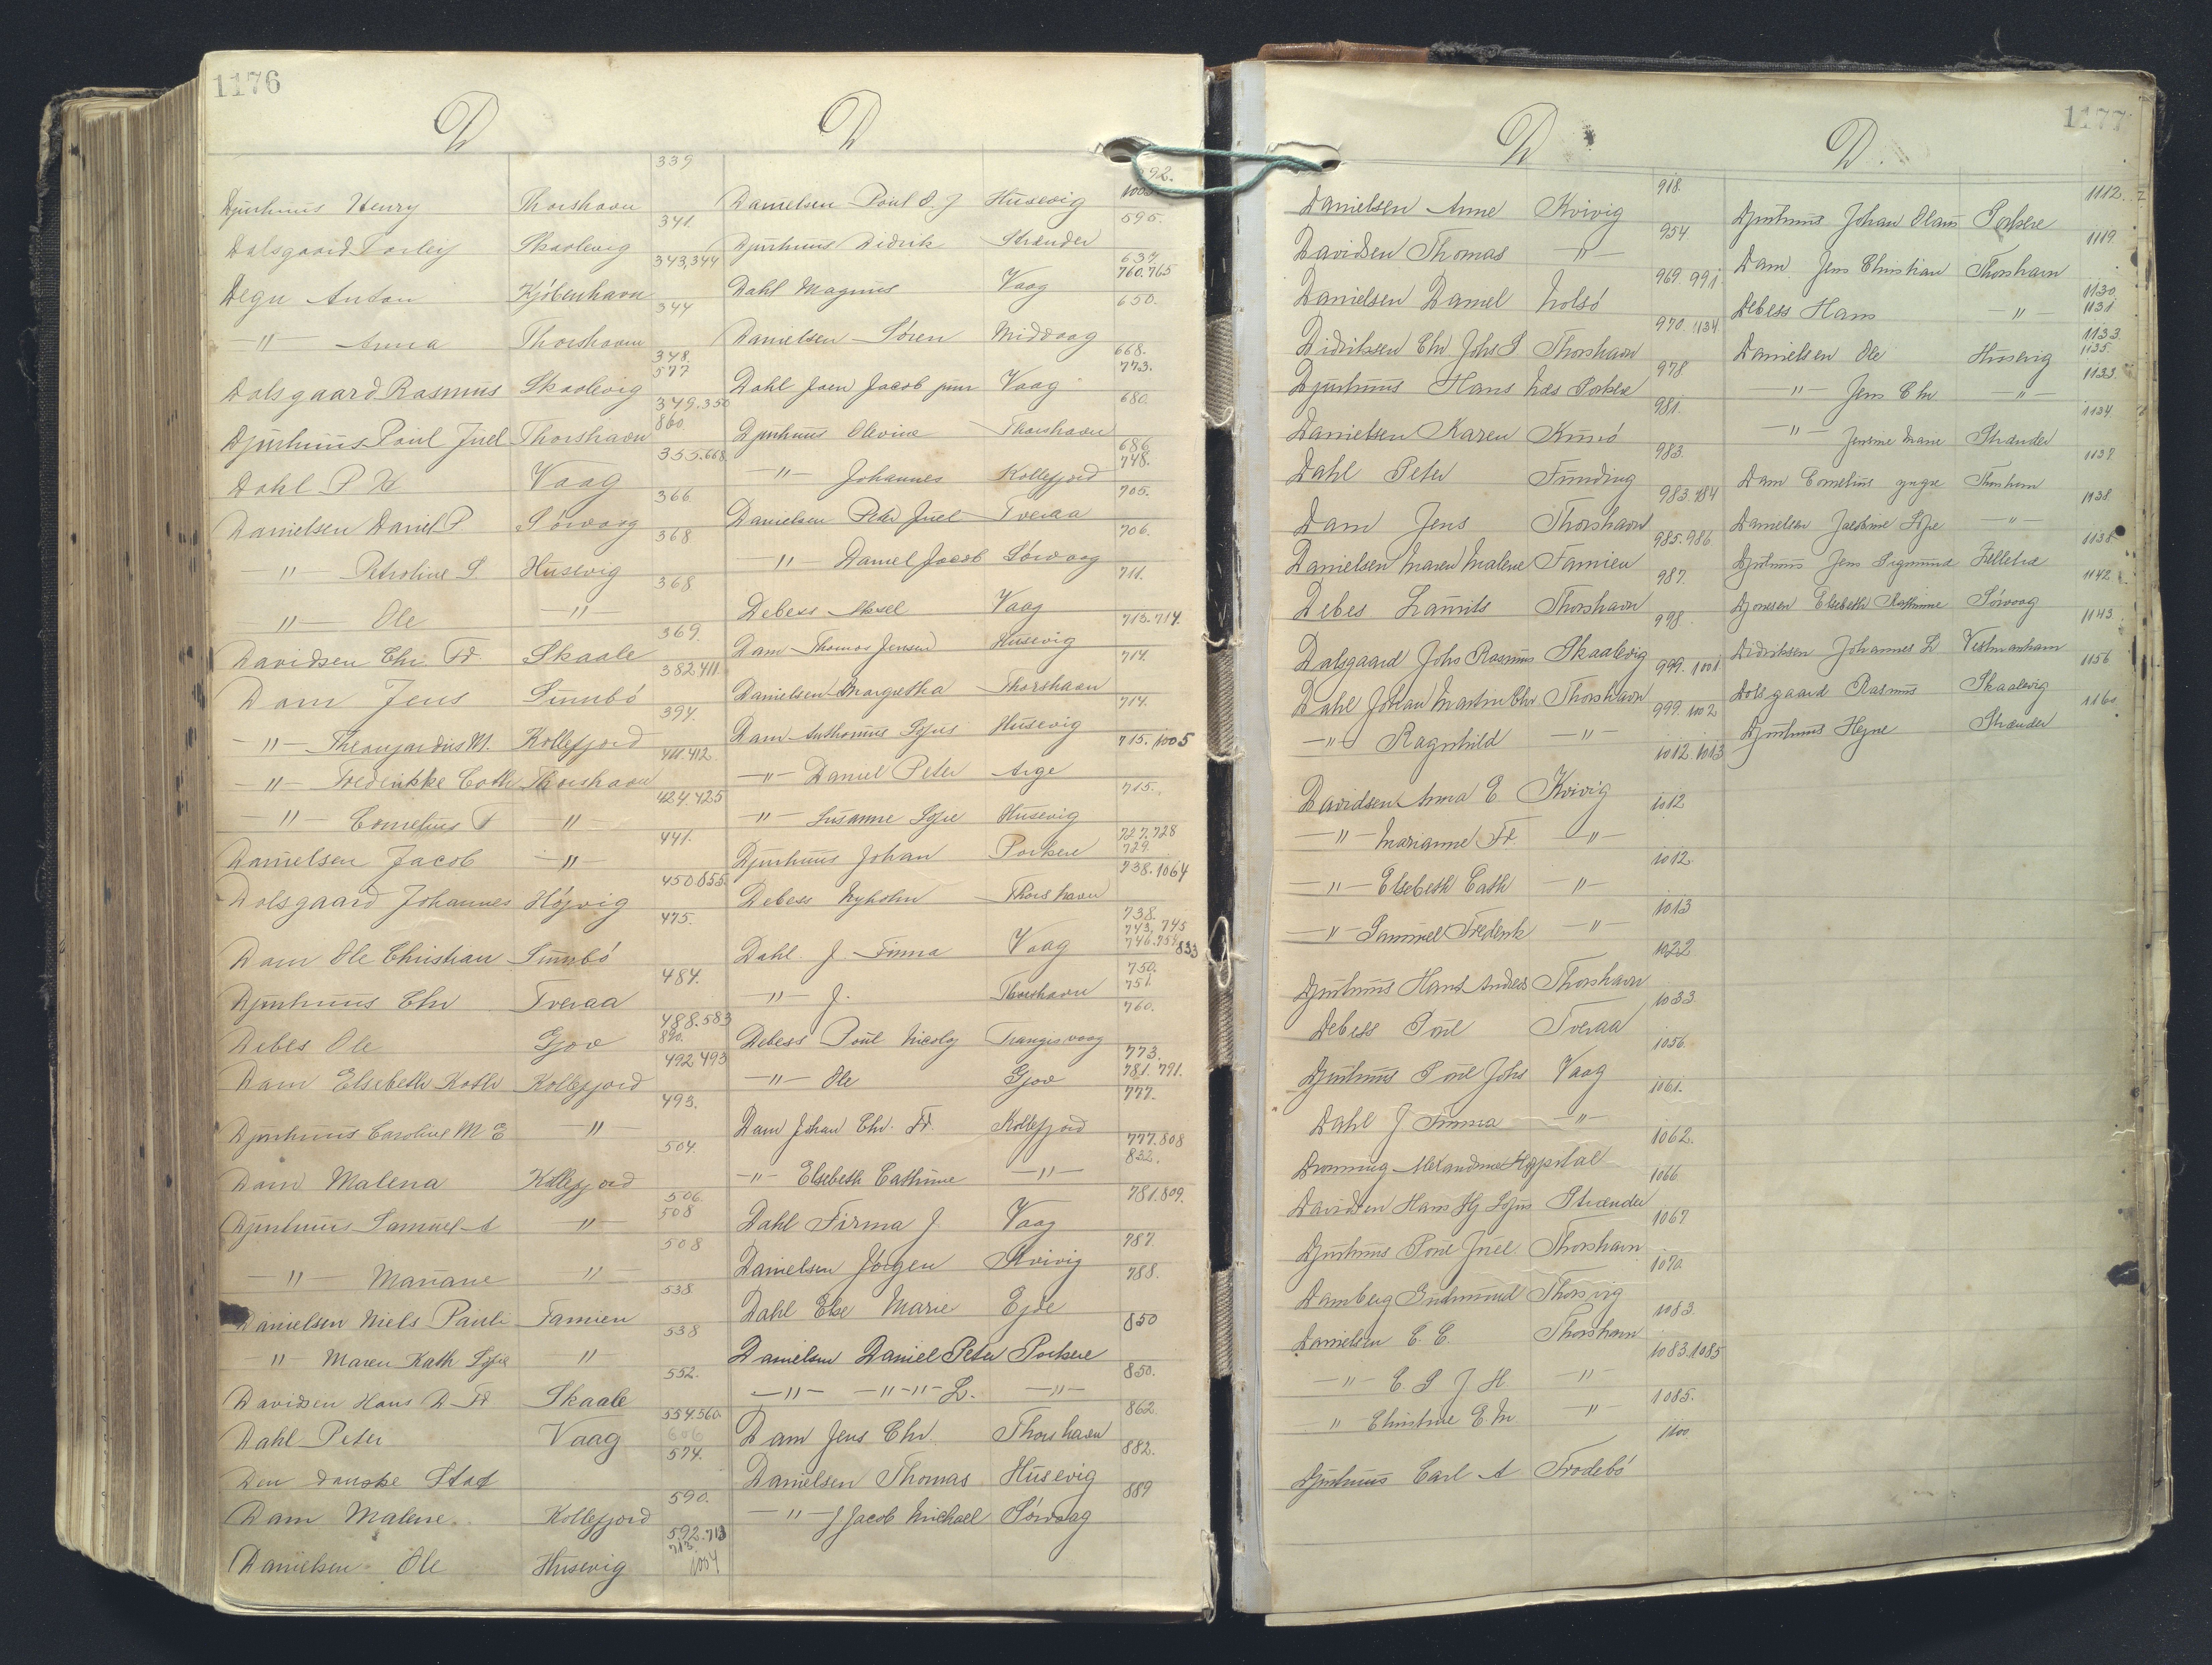 1176
D
D
Djurhuus Henry Thorshavn 339
Dalsgaard Torleif Skaalevig 341.
Degn Anton Kjöbenhavn 343,344
—"— Anna Thorshavn 344
Dalsgaard Rasmus Skaalevig 348. 577
Djurhuus Poul Juel Thorshavn 349.350 860
Dahl P Vaag 355.668
Danielsen Daniel P Sörvaag 366
" Petroline S. Husevig 368
" Ole —"— 368
Davidsen Chr. Fr. Skaale 369.
Dam Jens Sumbö 382 411.
—"— M. Kollefjord 394.
—"— Fredrikke Cath Thorshavn 411.412.
—"— Cornelius —"— 424.425
Danielsen Jacob —"— 441.
Dalsgaard Johannes Höjvig 450 855.
Dam Ole Christian Sumbö 475.
Djurhuus Chr Tveraa 484.
Debes Ole Gjov 488.583 890.
Dam Elsebeth Kath Kollefjord 492 493
Djurhuus Caroline M E —"— 493.
Dam Malena Kollefjord 504.
Djurhuus Samuel A —"— 506. 508
—"— Mariane —"— 508
Danielsen Niels Pauli Famien 538.
" Maren Kath Sofie —"— 538
Davidsen Hans D Fr Skaale 552.
Dahl Peter Vaag 554.560. 606
Den danske Stat 574.
Dam Malene Kollefjord 590.
Danielsen Ole Husevig 592.713 713. 1054
Danielsen Poul S. J Husevig 592. 1005
Djurhuus Didrik Strænder 595.
Dahl Magnus Vaag 637. 760.765
Danielsen Sören Midvaag 650.
Dahl Joen Jacob jun Vaag 668. 773.
Djurhuus Olevine Thorshavn 680.
—"— Johannes Kollefjord 686. 748.
Danielsen Peter Juel Tveraa 705.
—"— Daniel Jacob Sörvaag 706.
Debess Aksel Vaag 711.
Dam Thomas Jensen Husevig 713.714.
Danielsen Margretha Thorshavn 714.
Dam Anthonius Sofus Husevig 714.
—"— Daniel Peter Arge 715. 1005
—"— Susanne Sofie Husevig 715.
Djurhuus Johan Porkere 727.728 729.
Debess Nyholm Thorshavn 738.1064
Dahl J Firma Vaag 738. 743, 745 746.758. 833
—"— J. Thorshavn 750. 751.
Debess Poul Nicolaj Trangisvaag 760.
—"— Ole Gjov 773. 781.791.
Dam Johan Chr. Fr. Kollefjord 777.
—"— Elsebeth Cathrine —"— 777.808 832.
Dahl Firma J. Vaag 781.809.
Danielsen Jörgen Kvivig 787.
Dahl Else Marie Ejde 788.
Danielsen Daniel Peter Porkere 850
—"— —"—"— L. —"— 850.
Dam Jens Chr. Thorshavn 862.
Danielsen Thomas Husevig 882.
—"— J Jacob Michael Sörvaag 889
1177
D
D.
Danielsen Anne Kvivig 918.
Davidsen Thomas —"— 954
Danielsen Daniel Nolsö 969. 991.
Didriksen Chr Johs S Thorshavn 970. 1134
Djurhuus Hans Næs Porkere 978
Danielsen Karen Kunö 981.
Dahl Peter Funding 983.
Dam Jens Thorshavn 983.984
Danielsen Maren Malene Famien 985.986
Debes Laurits Thorshavn 987.
Dalsgaard Johs Rasmus Skaalevig 998.
Dahl Johan Martin Chr Thorshavn 999. 1001
—"— Ragnhild —"— 999. 1002
Davidsen Anna E. Kvivig 1012.1013
—"— Marianne Fr. —"— 1012
—"— Elsebeth Cath —"— 1012.
—"— Sammuel Fredrik —"— 1013
Djurhuus Hans Andreas Thorshavn 1022
Debess Poul Tveraa 1033
Djurhuus Poul Johs Vaag 1056.
Dahl J. Firma —"— 1061.
Dronning Alexandrine Hospital 1062.
Davidsen Hans Hj Sofus Strænder 1066
Djurhuus Poul Juel Thorshavn 1067
Damberg Gudmund Thorsvig 1070.
Danielsen C. C. Thorshavn 1083.
—"— C S J H —"— 1083.1085
—" Christine E. M. —"— 1085.
Djurhuus Carl A Frodebö 1100
Djurhuus Johan Olaus Porkere 1112.
Dam Jens Christian Thorshavn 1119.
Debess Hans —"— 1130. 1131
Danielsen Ole Husevig 1133. 1135.
—"— Jens Chr —"— 1133.
—"— Marie Strænder 1134
Dam Cornelius yngre Thorshavn 1137
Danielsen Sofie —"— 1138.
Djurhuus Jens Sigmund 1138.
Elsebeth Kathrine Sörvaag 1142
Didriksen Johannes D Vestmanhavn 1143.
Dalsgaard Rasmus Skaalevig 1156
Djurhuus Strænder 1160